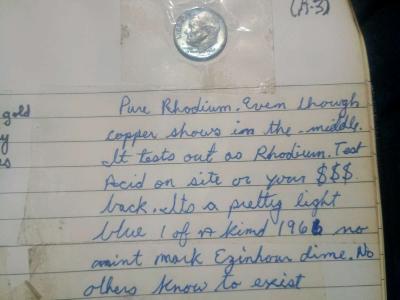 (A-3)
Pure Rhodium. Even though
gold
copper shows in the middle.
It tests out as Rhodium. Test
Acid on site or your $$$
back. Its a pretty light
blue 1 of a kind 196 no
mint mark dime. No
others know to exist